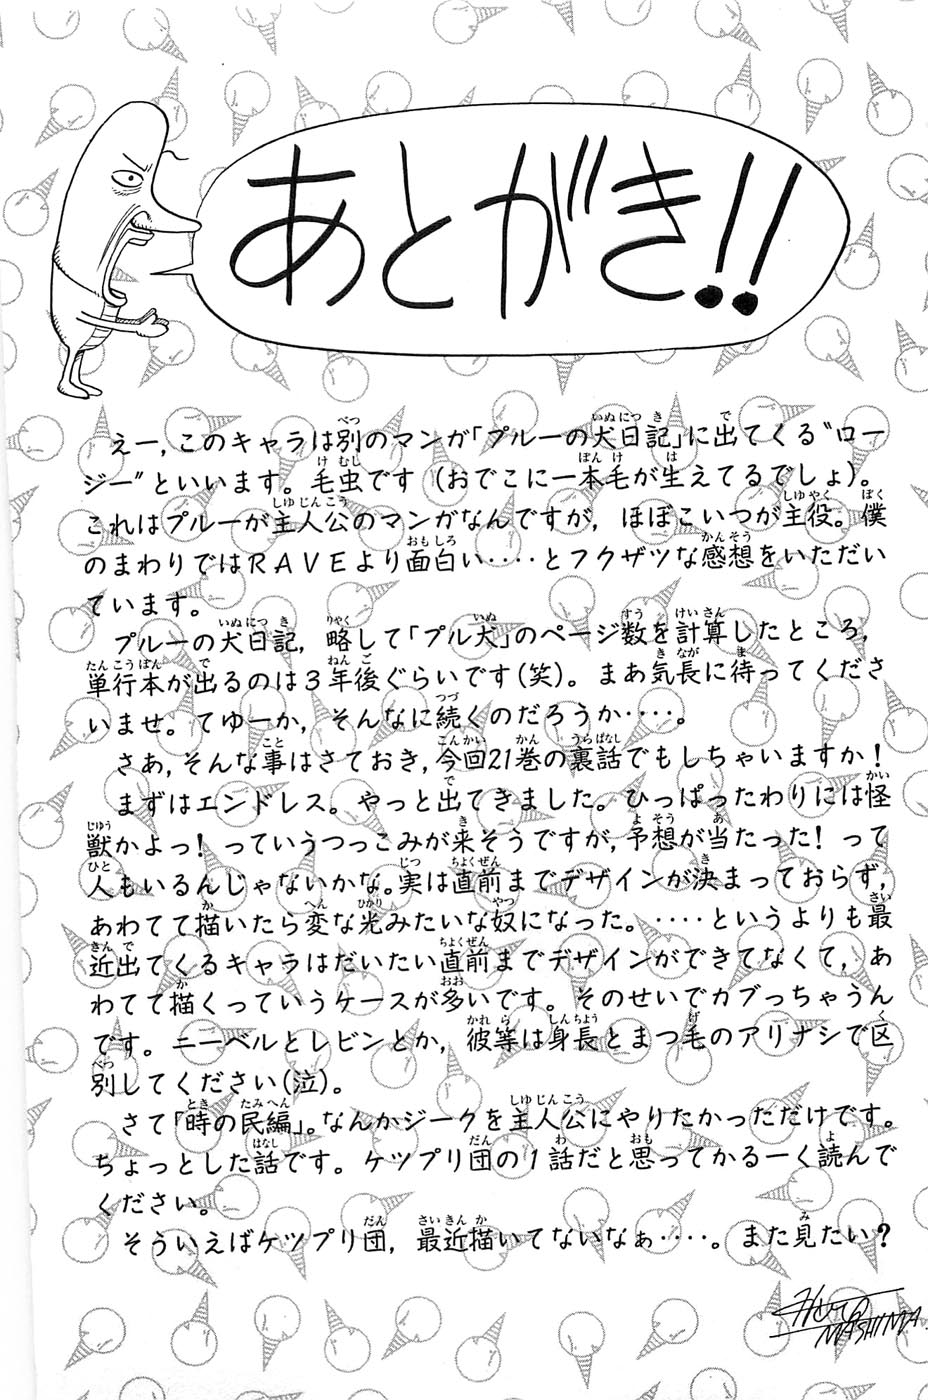 あとがき!!
えー,このキャラは別のマンガ「プルーの犬日記」に出てくる“ロー
ジー”といいます。毛虫です(おでこに一本毛が生えてるでしょ)。
これはプルーが主人公のマンガなんですが,ほぼこいつが主役。僕
のまわりではRAVEより面白い‥‥とフクザツな感想をいただい
ています。
プルーの犬日記,略して「プル犬」のページ数を計算したところ,
単行本が出るのは3年後ぐらいです(笑)。まあ気長に待ってくださ
いませ。てゆーか,そんなに続くのだろうか‥‥。
さあ,そんな事はさておき,今回21巻の裏話でもしちゃいますか!
まずはエンドレス。やっと出てきました。ひっぱったわりには怪
獣かよっ!っていうつっこみが来そうですが,予想が当たった!って
人もいるんじゃないかな。実は直前までデザインが決まっておらず,
あわてて描いたら変な光みたいな奴になった。‥‥というよりも最
近出てくるキャラはだいたい直前までデザインができてなくて,あ
わてて描くっていうケースが多いです。そのせいでカブっちゃうん
です。ニーベルとレビンとか,彼等は身長とまつ毛のアリナシで区
別してください(泣)。
さて「時の民編」。なんかジークを主人公にやりたかっただけです。
ちょっとした話です。ケツプリ団の1話だと思ってかるーく読んで
ください。
そういえばケツプリ団,最近描いてないなぁ‥‥。また見たい?
Hiro
MASHIMA